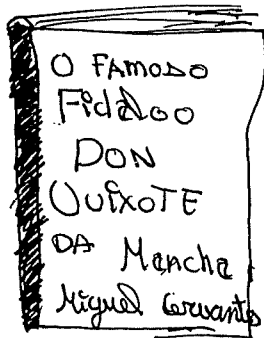 O FAMOSO
Fidalgo
DON
QUIXOTE
DA Mancha
Miguel Cervantes